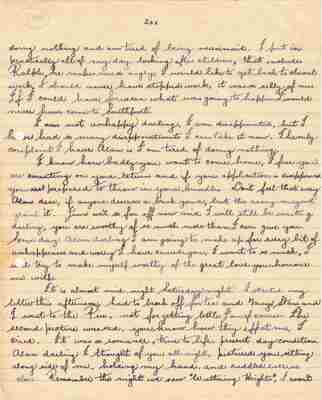 doing nothing and am tired of being maimaid. I put in
practically all of my day looking after children, that includes
Ralph, he makes me so angry. I would like to get back to school
work, I should never have stopped work, it was silly of me
If I could have foreseen what was going to happen I would
never have come to
I am not unhappy darling, I am disappointed, but I
have had so many disappointments I can take it now. I
complaint I have Alan is I am tired of doing nothing.
I know how badly you want to come home, I fear you are
counting on your return and if your application is disapproved
you are prepared to throw in your bundle. Don't feel that way
Alan dear, if anyone deserves a break you do, but the army may not
grant it. Just wait so far off now and I will still be waiting
darling, you are worthy of so much more than I can give you
some day Alan darling I am going to make up for every bit of
unhappiness and worry I have caused you, I want to so much,
to try to make myself worthy of the great love you honour
me with.
It is almost mid night Saturday night I started my
letter this afternoon, had to break off for tea and Gary, Glenn and
I went to the Plaza, not forgetting little The
second picture was sad, you know how they affect me, I
cried. It was a romance, true to life present day condition
Alan darling I thought of you all night, pictured you sitting
along side of me, holding my hand, and
also. Remember the night we saw "Wuthering Heights", I went